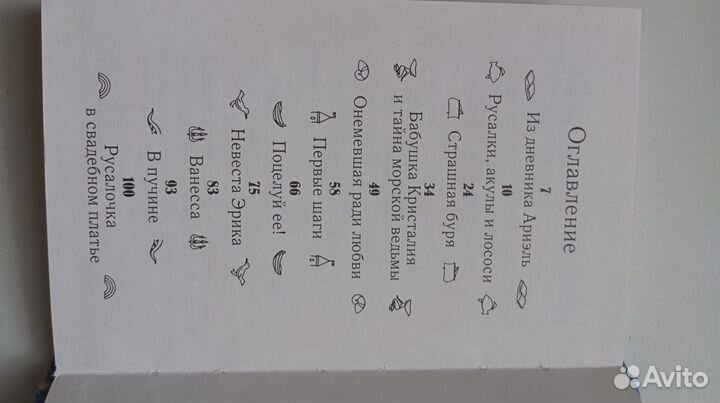 Оглавление
Из дневника Ариэль
7
Русалки, акулы и лососи
10
Страшная буря
24
Бабушка Кристалия
и тайна морской ведьмы
34
Онемевшая ради любви
49
Первые шаги
58
Поцелуй ее!
66
Невеста Эрика
75
Ванесса
83
В пучине
93
Русалочка
в свадебном платье
100
Avito